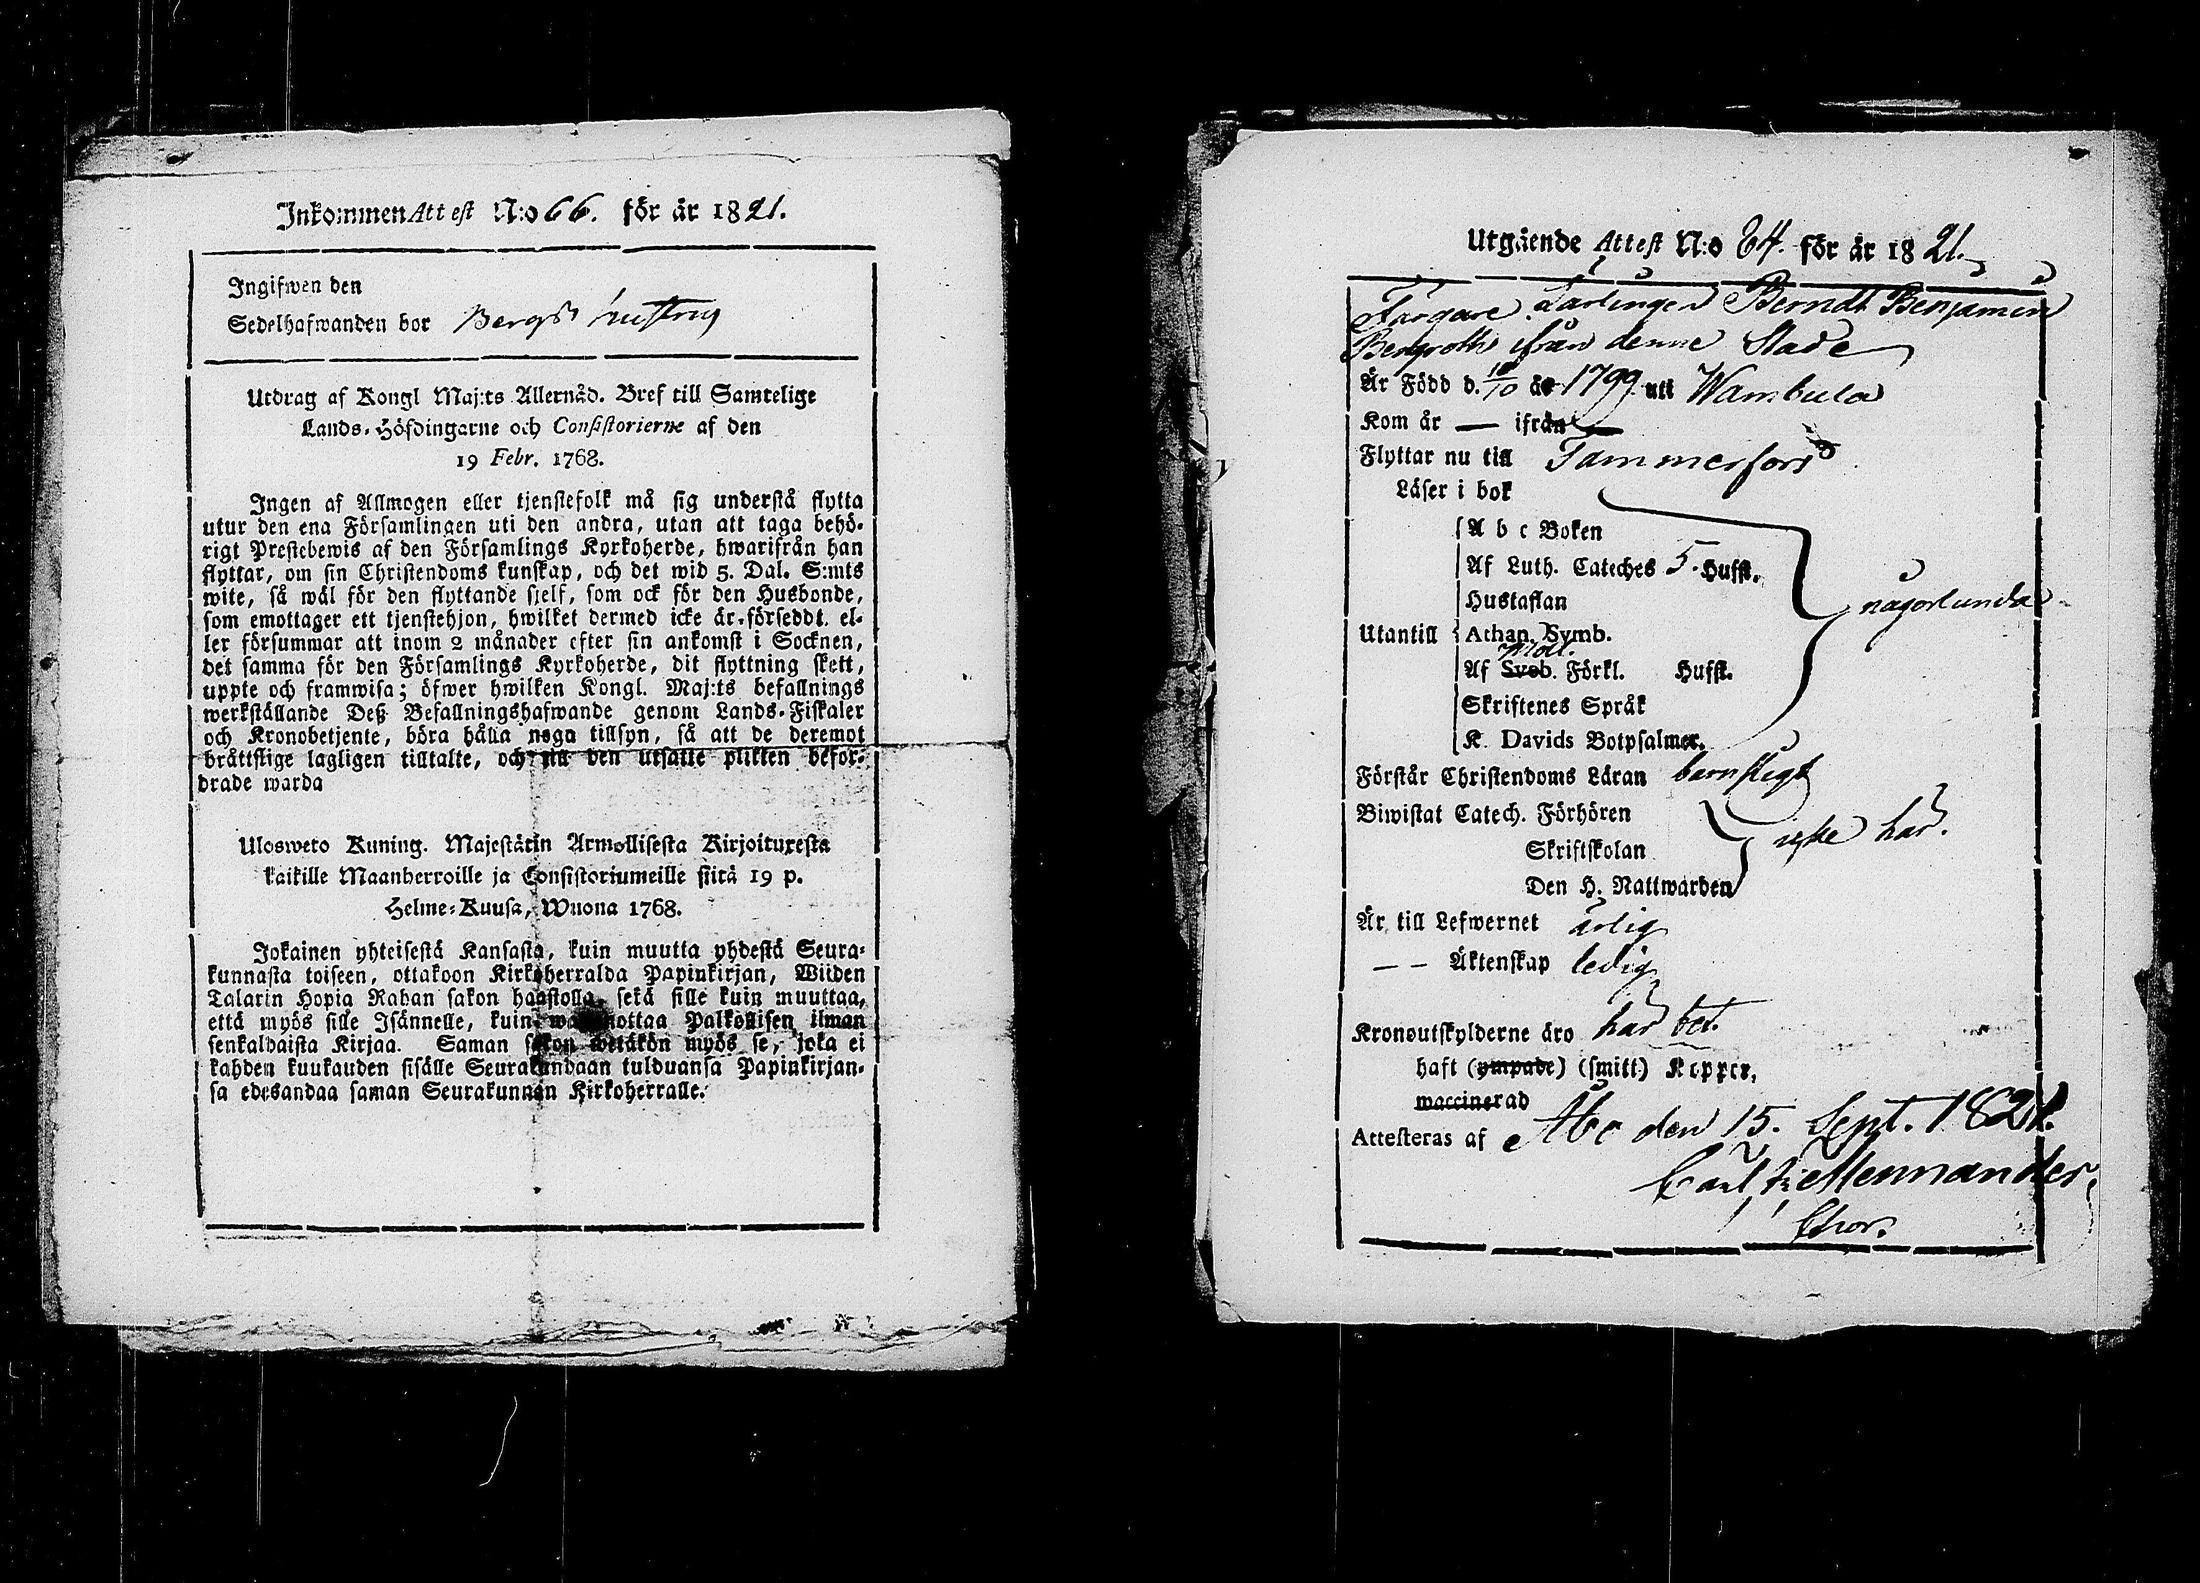 Inkommen Attest N:o 66. för år 1821.
Ingifwen den
Sedelhafwanden bor Bergst
Utdrag af Kongl Maj:ts Allernåd. Bref till Samtelige
Lands-Höfdingarne och Consistorierne af den
19 Febr. 1768.
Ingen af Allmogen eller tjenstefolk må sig understå flytta
utur den ena Församlingen uti den andra, utan att taga behö-
rigt Prestebewis af den Församlings Kyrkoherde, hwarifrån han
flyttar, om sin Christendoms kunskap, och det wid 5. Dal. S:mts
wite, så wäl för den flyttande sjelf, som ock för den Husbonde,
som emottager ett tjenstehjon, hwilket dermed icke är förseddt, el-
ler försummar att inom 2 månader efter sin ankomst i Socknen,
det samma för den Församlings Kyrkoherde, dit flyttning skett,
uppte och framwisa; öfwer hwilken Kongl. Maj:ts befallnings
werkställande Deß Befallningshafwande genom Lands-Fiskaler
och Kronobetjente, böra hålla noga tillsyn, så att de deremot
bråttslige lagligen tilltalte, och till den utsatte plikten befor-
drade warda
Ulosweto Kuning. Majestätin Armollisesta Kirjoituxesta
kaikille Maanherroille ja Consistoriumeille siitä 19 p.
Helme-Kuusa, Wuona 1768.
Jokainen yhteisestä Kansasta, kuin muutta yhdestä Seura-
kunnasta toiseen, ottakoon Kirkoherralda Papinkirjan, Wiiden
Talarin Hopia Rahan sakon haastolla, sekä sille kuin muuttaa,
että myös sille Isännelle, kuin ottaa Palkollisen ilman
senkalhaista Kirjaa. Saman sakon wetäkön myös se, joka ei
kahden kuukauden sisälle Seurakundaan tulduansa Papinkirjan-
sa edesandaa saman Seurakunnan Kirkoherralle.
Utgående Attest N:o 84. för år 1821.
Färgare Lärlingen Berndt Benjamin
Bergroth ifrån denne Stade
Är Född d. 18/10 år 1799 uti Wambula
Kom år — ifrån —
Flyttar nu till Tammerfors
Läser i bok
A b c Boken
Af Luth. Cateches 5. Hufst.
Hustaflan
någorlunda
Utantill Athan. Symb.
Moll.
Af Sveb. Förkl. Hufst.
Skriftenes Språk
K. Davids Botpsalmer.
Förstår Christendoms Läran barnsligt
Biwistat Catech. Förhören
Skriftskolan
icke här.
Den H. Nattwarden
Är till Lefwernet ärlig
— — Äktenskap ledig
Kronoutskylderne äro här bet.
haft (ympade) (smitt) Koppor,
waccinerad
Attesteras af Åbo den 15. Sept. 1821.
Carl Fr. Mennander